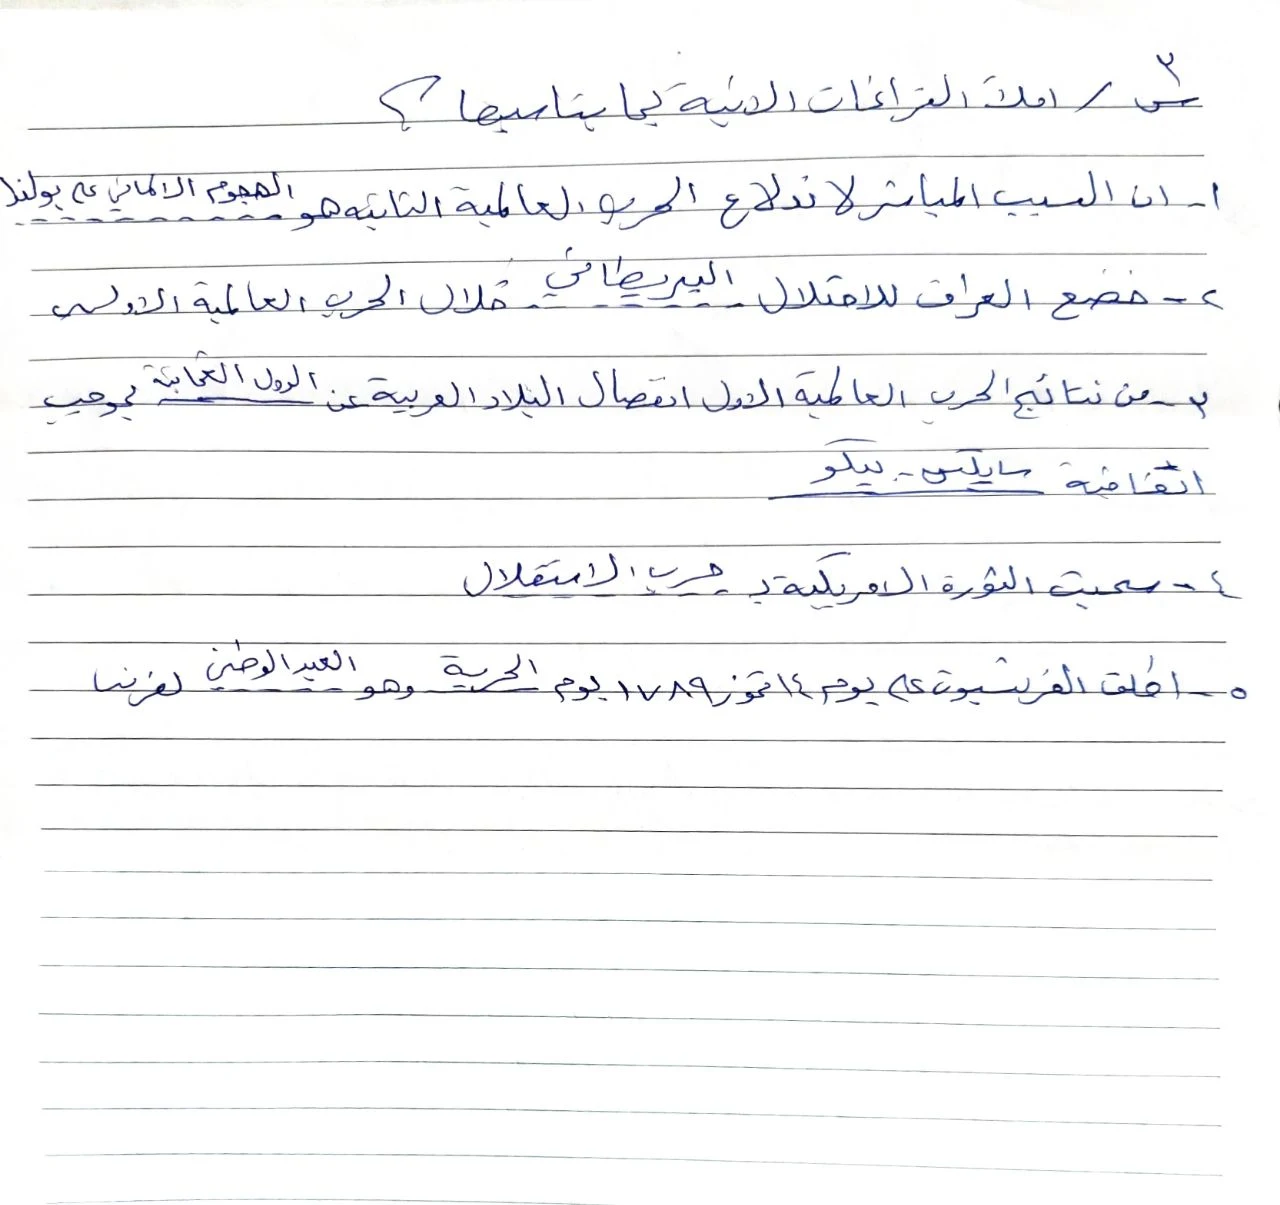 س٣/ املأ الفراغات الاتية بما يناسبها ؟
١- ان السبب المباشر لاندلاع الحرب العالمية الثانية هو الهجوم الالماني على بولندا
٢- خضع العراق للاحتلال البريطاني خلال الحرب العالمية الاولى
٣- من نتائج الحرب العالمية الاول انفصال البلاد العربية عن الدول العثمانية بموجب
اتفاقية سايكس - بيكو
٤- سميت الثورة الامريكية بـ حرب الاستقلال
٥- اطلق الفرنسيون على يوم ١٤ تموز ١٧٨٩ يوم الحرية وهو العيد الوطني لفرنسا